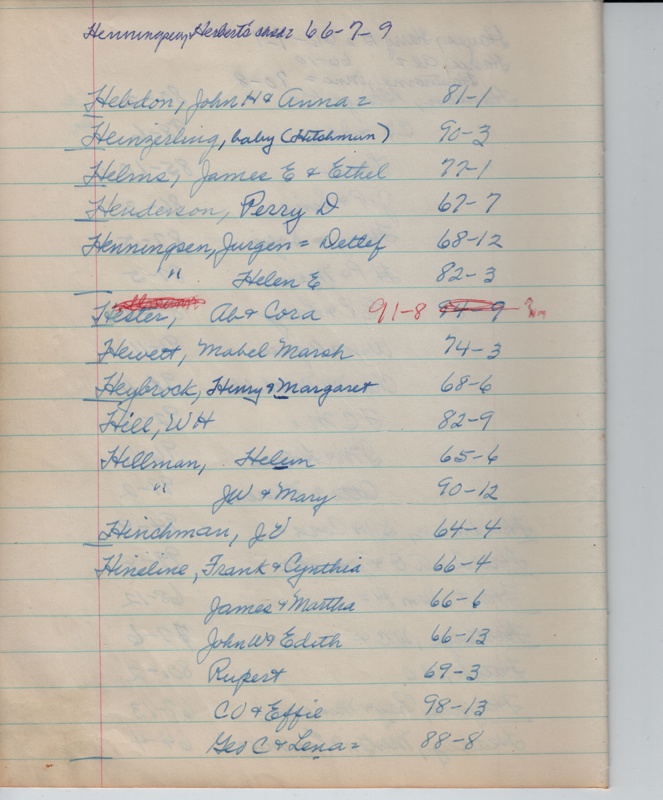 Henningsen, Herbert's 66-7-9
Hebdon, John H & Anna = 81-1
Heinzerling, baby (Hitchman) 90-3
Helms, James E & Ethel 77-1
Henderson, Perry D 67-7
Henningsen, Jurgen = Detlef 68-12
" Helen E 82-3
Hester, Ab & Cora 91-8 94-9 ?
Hewett, Mabel Marsh 74-3
Heybrock, Henry & Margaret 68-6
Hill, WH 82-9
Hillman, Helen 65-6
" JW & Mary 90-12
Hinchman, JW 64-4
Hineline, Frank & Cynthia 66-4
James & Martha 66-6
John W & Edith 66-13
Rupert 69-3
CO & Effie 98-13
Geo C & Lena = 88-8